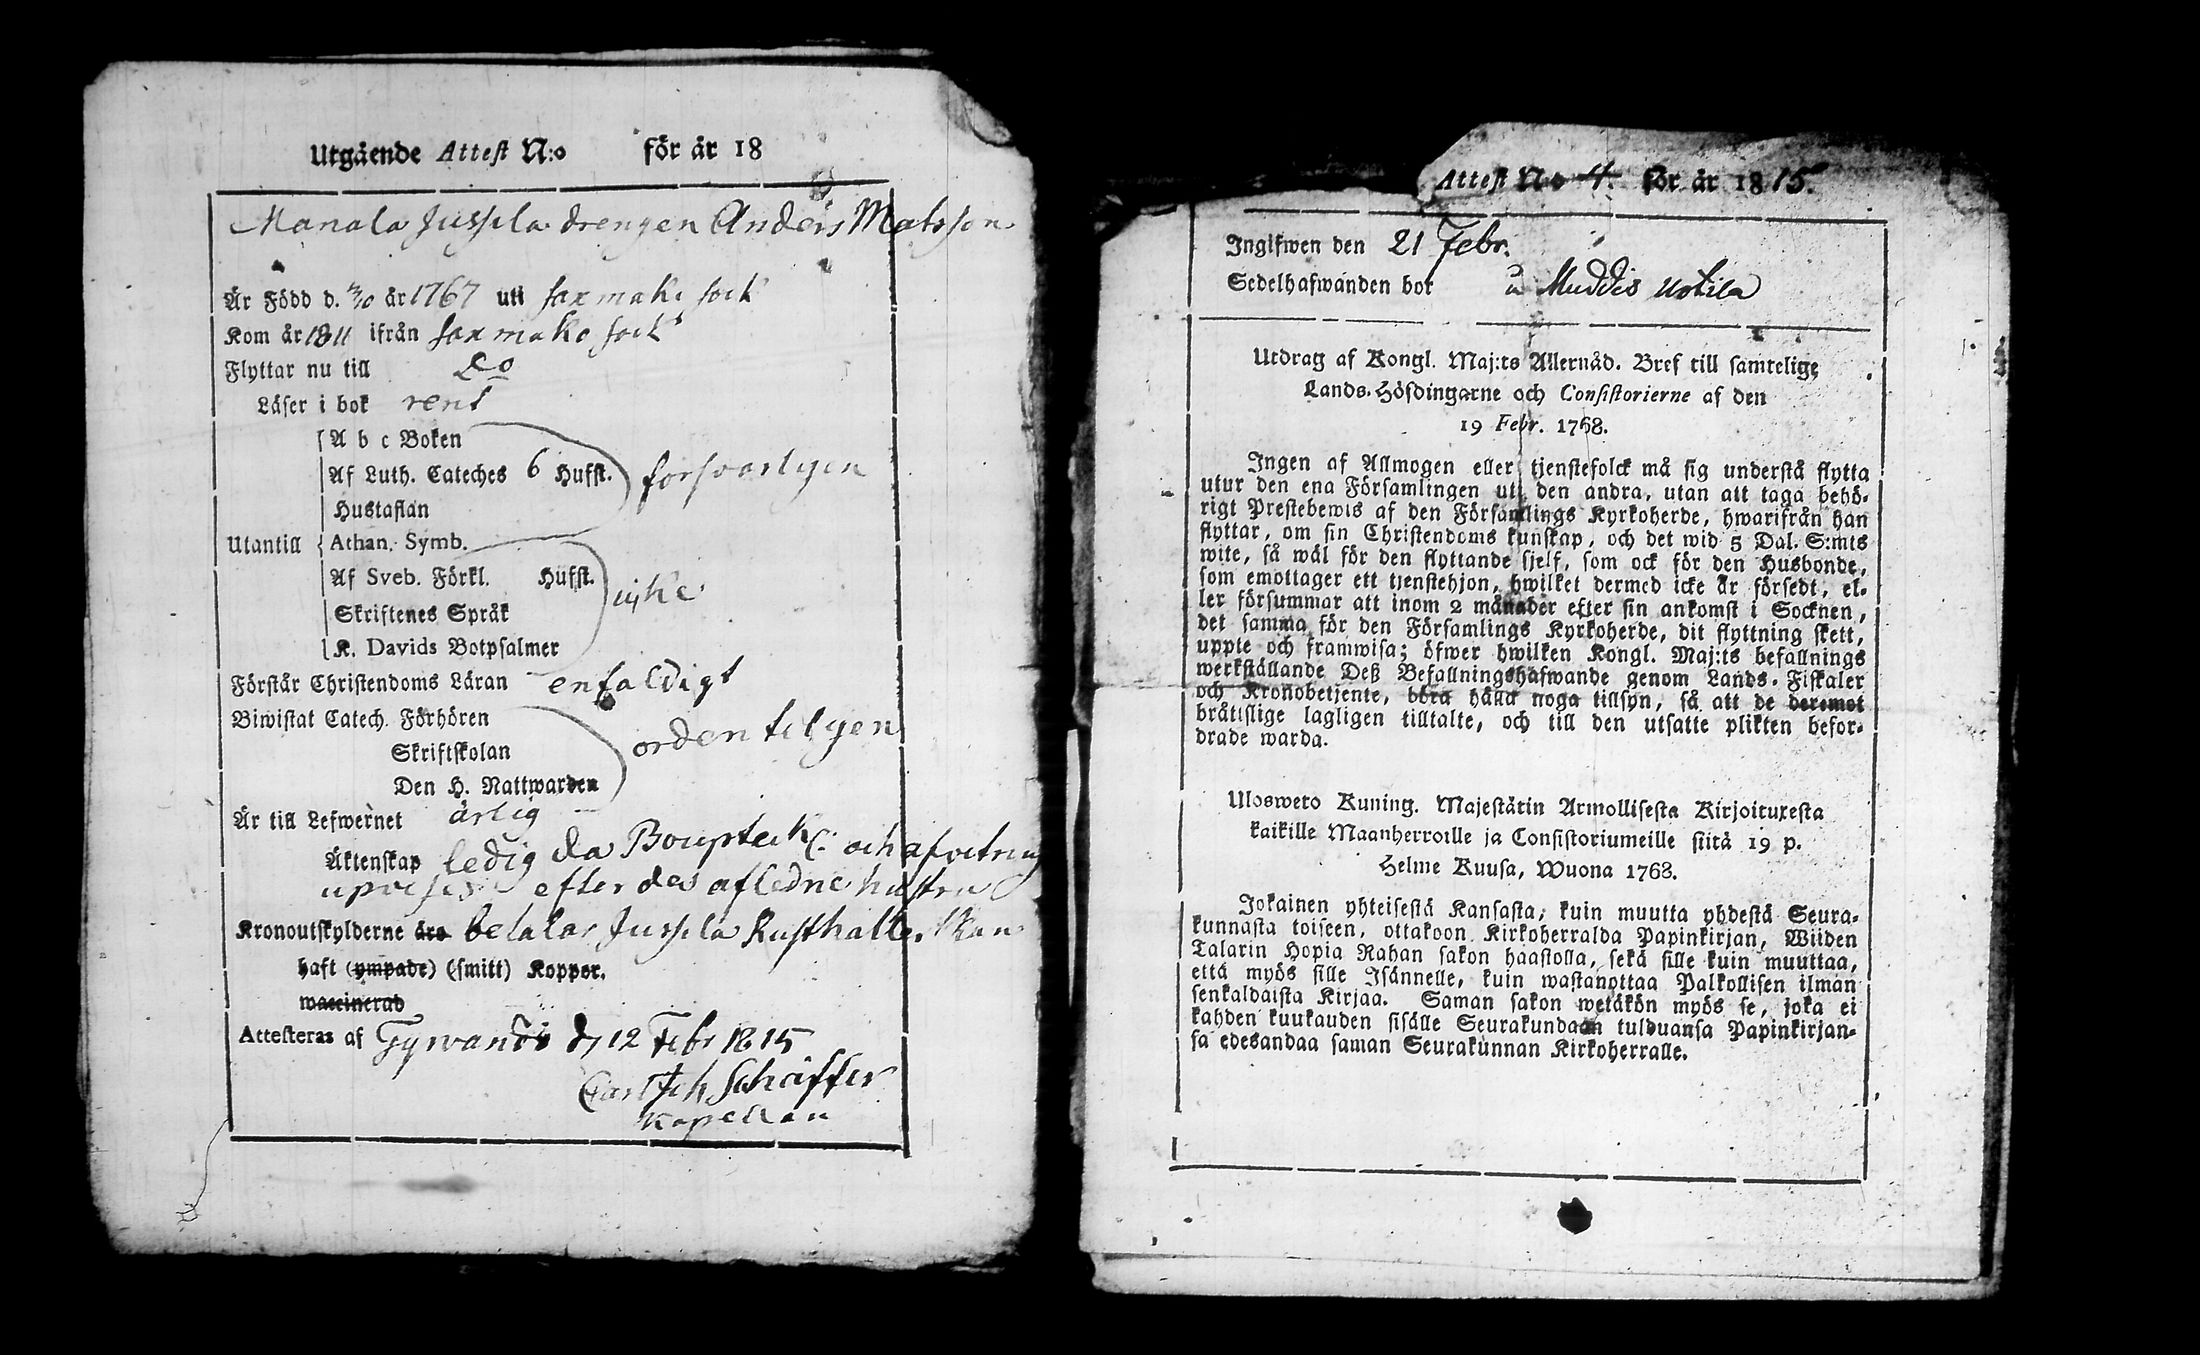 Utgående Attest N:o för år 18
Manala Jussila drengen Anders Matsson
Är Född d. år 1767 uti saxmaki sock
Kom år 1811 ifrån saxmako sock
Flyttar nu till Do
Läser i bok rent
A b c Boken
Af Luth. Cateches 6 Hufst. forsvarligen
Hustaflan
Utantill Athan. Symb.
Af Sveb. Förkl. Hufst. icke
Skriftenes Språk
K. Davids Botpsalmer
Förstår Christendoms Läran enfaldigt
Biwistat Catech. Förhören
Skriftskolan ordentelgen
Den H. Nattwarden
Är till Lefwernet ärlig
Äktenskap ledig da och
efter des afledne hustru
Kronoutskylderne äro betalar Jussila Rusthaller
haft (ympade) (smitt) Koppor.
waccinerad
Attesteras af Tyrvändö d 12 Febr 1815
Schäffer
Kapellan
Attest No 4. för år 1815.
Ingifwen den 21 Febr.
Sedelhafwanden bor Muddis Uotila
Utdrag af Kongl. Maj:ts Allernåd. Bref till samtelige
Lands-Höfdingarne och Consistorierne af den
19 Febr. 1768.
Ingen af Allmogen eller tjenstefolck må sig understå flytta
utur den ena Församlingen uti den andra, utan att taga behö-
rigt Prestebewis af den Församlings Kyrkoherde, hwarifrån han
flyttar, om sin Christendoms kunskap, och det wid 5 Dal. S:mts
wite, så wäl för den flyttande sjelf, som ock för den Husbonde,
som emottager ett tjenstehjon, hwilket dermed icke är försedt, el-
ler försummar att inom 2 månader efter sin ankomst i Socknen,
det samma för den Församlings Kyrkoherde, dit flyttning skett,
uppte och framwisa; öfwer hwilken Kongl. Maj:ts befallnings
werkställande Deß Befallningshafwande genom Lands-Fiskaler
och Kronobetjente, böra hålla noga tillsyn, så att de deremot
bråtislige lagligen tilltalte, och till den utsatte plikten befor-
drade warda.
Ulosweto Kuning. Majestätin Armollisesta Kirjoituxesta
kaikille Maanherroille ja Consistoriumeille siitä 19 p.
Helme Kuusa, Wuona 1768.
Jokainen yhteisestä Kansasta, kuin muutta yhdestä Seura-
kunnasta toiseen, ottakoon Kirkoherralda Papinkirjan, Wiiden
Talarin Hopia Rahan sakon haastolla, sekä sille kuin muuttaa,
että myös sille Isännelle, kuin wastanottaa Palkollisen ilman
senkaldaista Kirjaa. Saman sakon wetäkön myös se, joka ei
kahden kuukauden sisälle Seurakundaan tulduansa Papinkirjan-
sa edesandaa saman Seurakunnan Kirkoherralle.